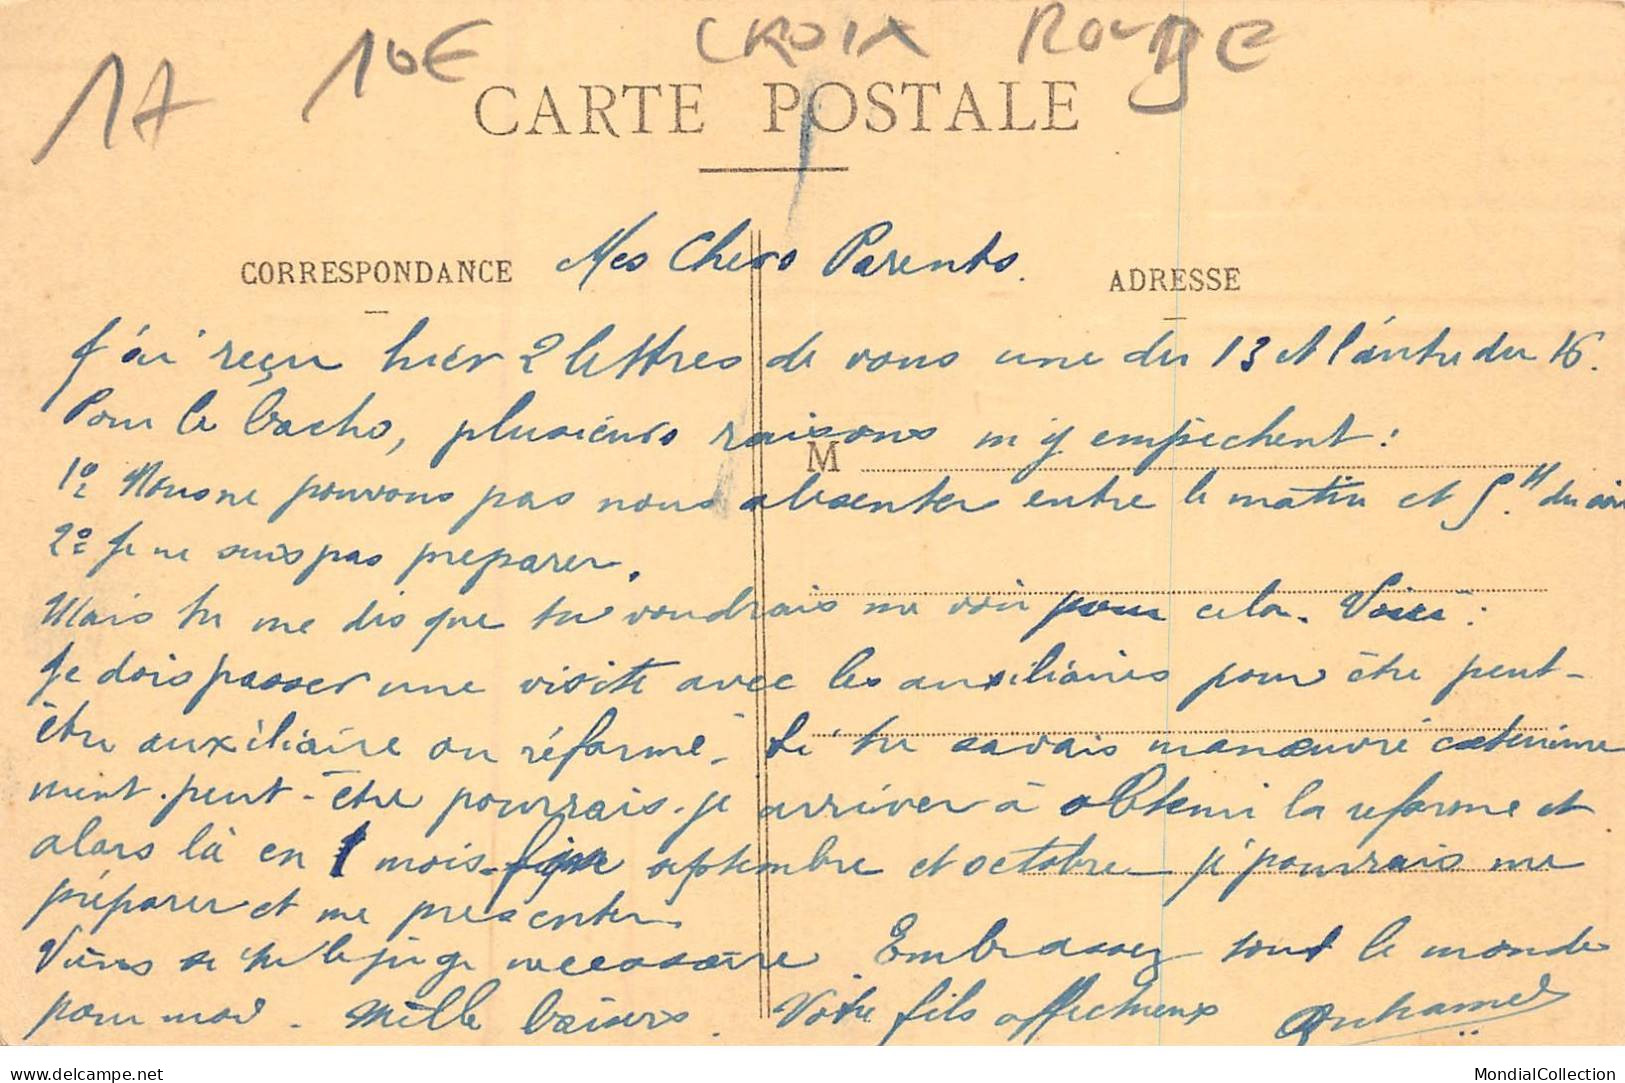 1A 10E CROIX ROUGE
CARTE POSTALE
CORRESPONDANCE Mes Chers Parents. ADRESSE
J'ai reçu hier 2 lettres de vous une du 13 et l'autre du 16.
Pour le bacho, plusieurs raisons m'y empechent :
M
1º Nous ne pouvons pas nous absenter entre le matin et 5.H du soir
2º Je ne suis pas preparer.
Mais tu me dis que tu voudrais me voir pour cela. Voici :
Je dois passer une visite avec les auxiliaires pour être peut-
être auxiliaire ou réformé. Si tu savais manœuvré
ment peut-être pourrais-je arriver à obtenir la reforme et
alors là en 1 mois septembre et octobre je pourrais me
préparer et me presenter.
Viens si tu le juge necessaire. Embrassez tout le monde
pour moi. Mille baisers. Votre fils affectueux Duhamel
mc
delcampe.net
MondialCollection